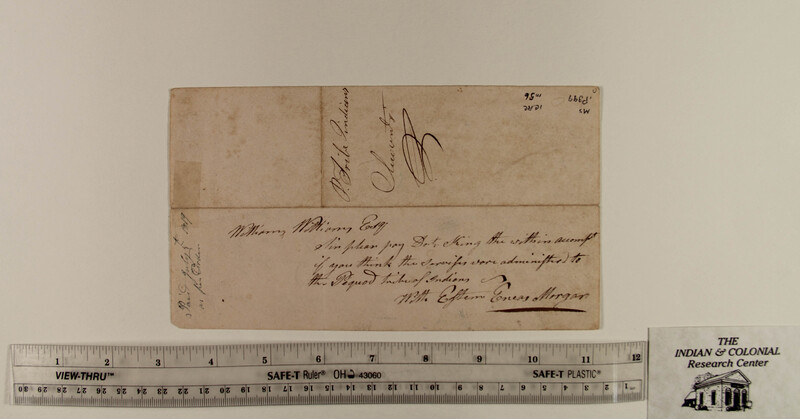 P. Tribe Indians
Accounts
Williams Williams Esqr
Sir pleas pay Dotr King the within accompt
if you think the servises ware administerd to
the Pequod tribe of Indians
With Esteem Eneas Morgan
Paid July
MS
P399
1812
m56
1 2 3 4 5 6 7 8 9 10 11 12
VIEW-THRU™ SAFE-T Ruler® OH 43060 SAFE-T PLASTIC®
30 29 28 27 26 25 24 23 22 21 20 19 18 17 16 15 14 13 12 11 10 9 8 7 6 5 4 3 2 1
THE
INDIAN & COLONIAL
Research Center